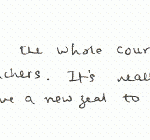 the whole cour
chers. It's reall
ve a new zeal to